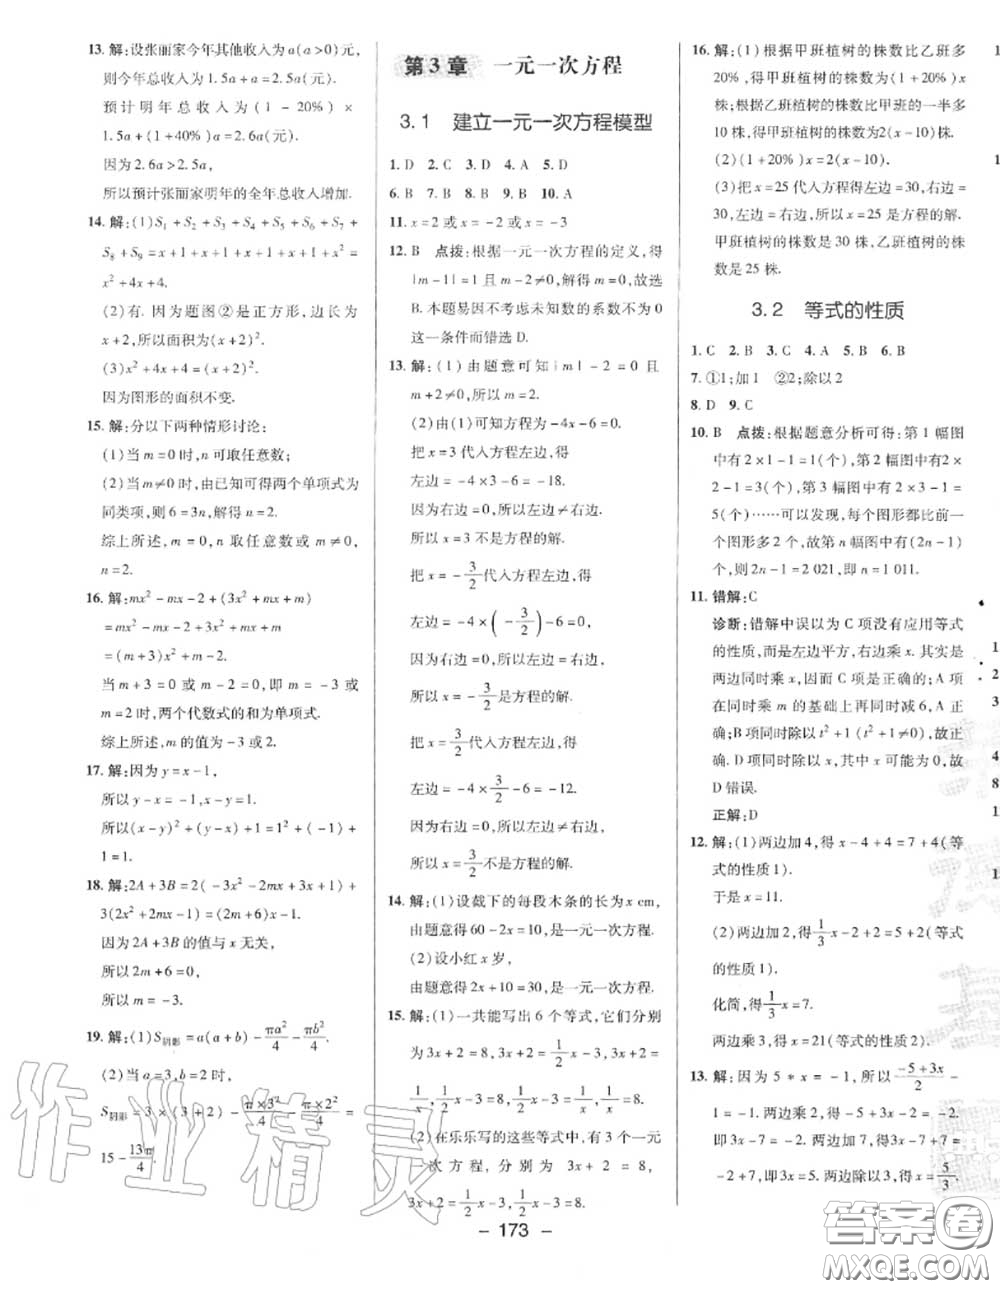 13. 解:设张丽家今年其他收入为 a(a>0)元,
则今年总收入为 1.5a+a=2.5a(元).
预计明年总收入为(1-20%)×
1.5a+(1+40%)a=2.6a(元).
因为 2.6a>2.5a,
所以预计张丽家明年的全年总收入增加.
14. 解:(1)S₁+S₂+S₃+S₄+S₅+S₆+S₇+
S₈+S₉=x+1+x+1+x+1+x+1+x²=
x²+4x+4.
(2)有. 因为题图②是正方形,边长为
x+2,所以面积为(x+2)².
(3)x²+4x+4=(x+2)².
因为图形的面积不变.
15. 解:分以下两种情形讨论:
(1)当 m=0时,n可取任意数;
(2)当 m≠0时,由已知可得两个单项式为
同类项,则6=3n,解得 n=2.
综上所述,m=0,n取任意数或 m≠0,
n=2.
16. 解:mx²-mx-2+(3x²+mx+m)
=mx²-mx-2+3x²+mx+m
=(m+3)x²+m-2.
当 m+3=0或 m-2=0,即 m=-3或
m=2时,两个代数式的和为单项式.
综上所述,m的值为-3或2.
17. 解:因为 y=x-1,
所以 y-x=-1,x-y=1.
所以(x-y)²+(y-x)+1=1²+(-1)+
1=1.
18. 解:2A+3B=2(-3x²-2mx+3x+1)+
3(2x²+2mx-1)=(2m+6)x-1.
因为2A+3B的值与x无关,
所以2m+6=0.
所以 m=-3.
19. 解:(1)S阴影=a(a+b)-πa²/4-πb²/4.
(2)当 a=3,b=2时,
S阴影=3×(3+2)-π×3²/4-π×2²/4=
15-13π/4.
第3章 一元一次方程
3.1 建立一元一次方程模型
1. D 2. C 3. D 4. A 5. D
6. B 7. B 8. B 9. B 10. A
11. x=2或x=-2或x=-3
12. B 点拨:根据一元一次方程的定义,得
|m-1|=1且m-2≠0,解得m=0,故选
B.本题易因不考虑未知数的系数不为0
这一条件而错选D.
13. 解:(1)由题意可知|m|-2=0且
m+2≠0,所以m=2.
(2)由(1)可知方程为-4x-6=0.
把x=3代入方程左边,得
左边=-4×3-6=-18.
因为右边=0,所以左边≠右边.
所以x=3不是方程的解.
把x=-3/2代入方程左边,得
左边=-4×(-3/2)-6=0.
因为右边=0,所以左边=右边.
所以x=-3/2是方程的解.
把x=3/2代入方程左边,得
左边=-4×3/2-6=-12.
因为右边=0,所以左边≠右边.
所以x=3/2不是方程的解.
14. 解:(1)设截下的每段木条的长为x cm,
由题意得60-2x=10,是一元一次方程.
(2)设小红x岁,
由题意得2x+10=30,是一元一次方程.
15. 解:(1)一共能写出6个等式,它们分别
为3x+2=8,3x+2=1/2x-3,3x+2=
1/x,1/2x-3=8,1/2x-3=1/x,1/x=8.
(2)在乐乐写的这些等式中,有3个一元
一次方程,分别为3x+2=8,
3x+2=1/2x-3,1/2x-3=8.
16. 解:(1)根据甲班植树的株数比乙班多
20%,得甲班植树的株数为(1+20%)x
株;根据乙班植树的株数比甲班的一半多
10株,得甲班植树的株数为2(x-10)株.
(2)(1+20%)x=2(x-10).
(3)把x=25代入方程得左边=30,右边=
30,左边=右边,所以x=25是方程的解.
甲班植树的株数是30株,乙班植树的株
数是25株.
3.2 等式的性质
1. C 2. B 3. C 4. A 5. B 6. B
7. ①1;加1 ②2;除以2
8. D 9. C
10. B 点拨:根据题意分析可得:第1幅图
中有2×1-1=1(个),第2幅图中有2×
2-1=3(个),第3幅图中有2×3-1=
5(个)……可以发现,每个图形都比前一
个图形多2个,故第n幅图中有(2n-1)
个,则2n-1=2 021,即n=1 011.
11. 错解:C
诊断:错解中误以为C项没有应用等式
的性质,而是左边平方,右边乘x.其实是
两边同时乘x,因而C项是正确的;A项
在同时乘m的基础上再同时减6,A正
确;B项同时除以t²+1(t²+1≠0),故正
确.D项同时除以x,其中x可能为0,故
D错误.
正解:D
12. 解:(1)两边加4,得x-4+4=7+4(等
式的性质1).
于是x=11.
(2)两边加2,得1/3x-2+2=5+2(等式
的性质1).
化简,得1/3x=7.
两边乘3,得x=21(等式的性质2).
13. 解:因为5*x=-1,所以(-5+3x)/2-
1=-1.两边乘2,得-5+3x-2=-2.
即3x-7=-2.两边加7,得3x-7+7=
-2+7,即3x=5.两边除以3,得x=5/3.
- 173 -
作业精灵
答案圈
MXQE.COM